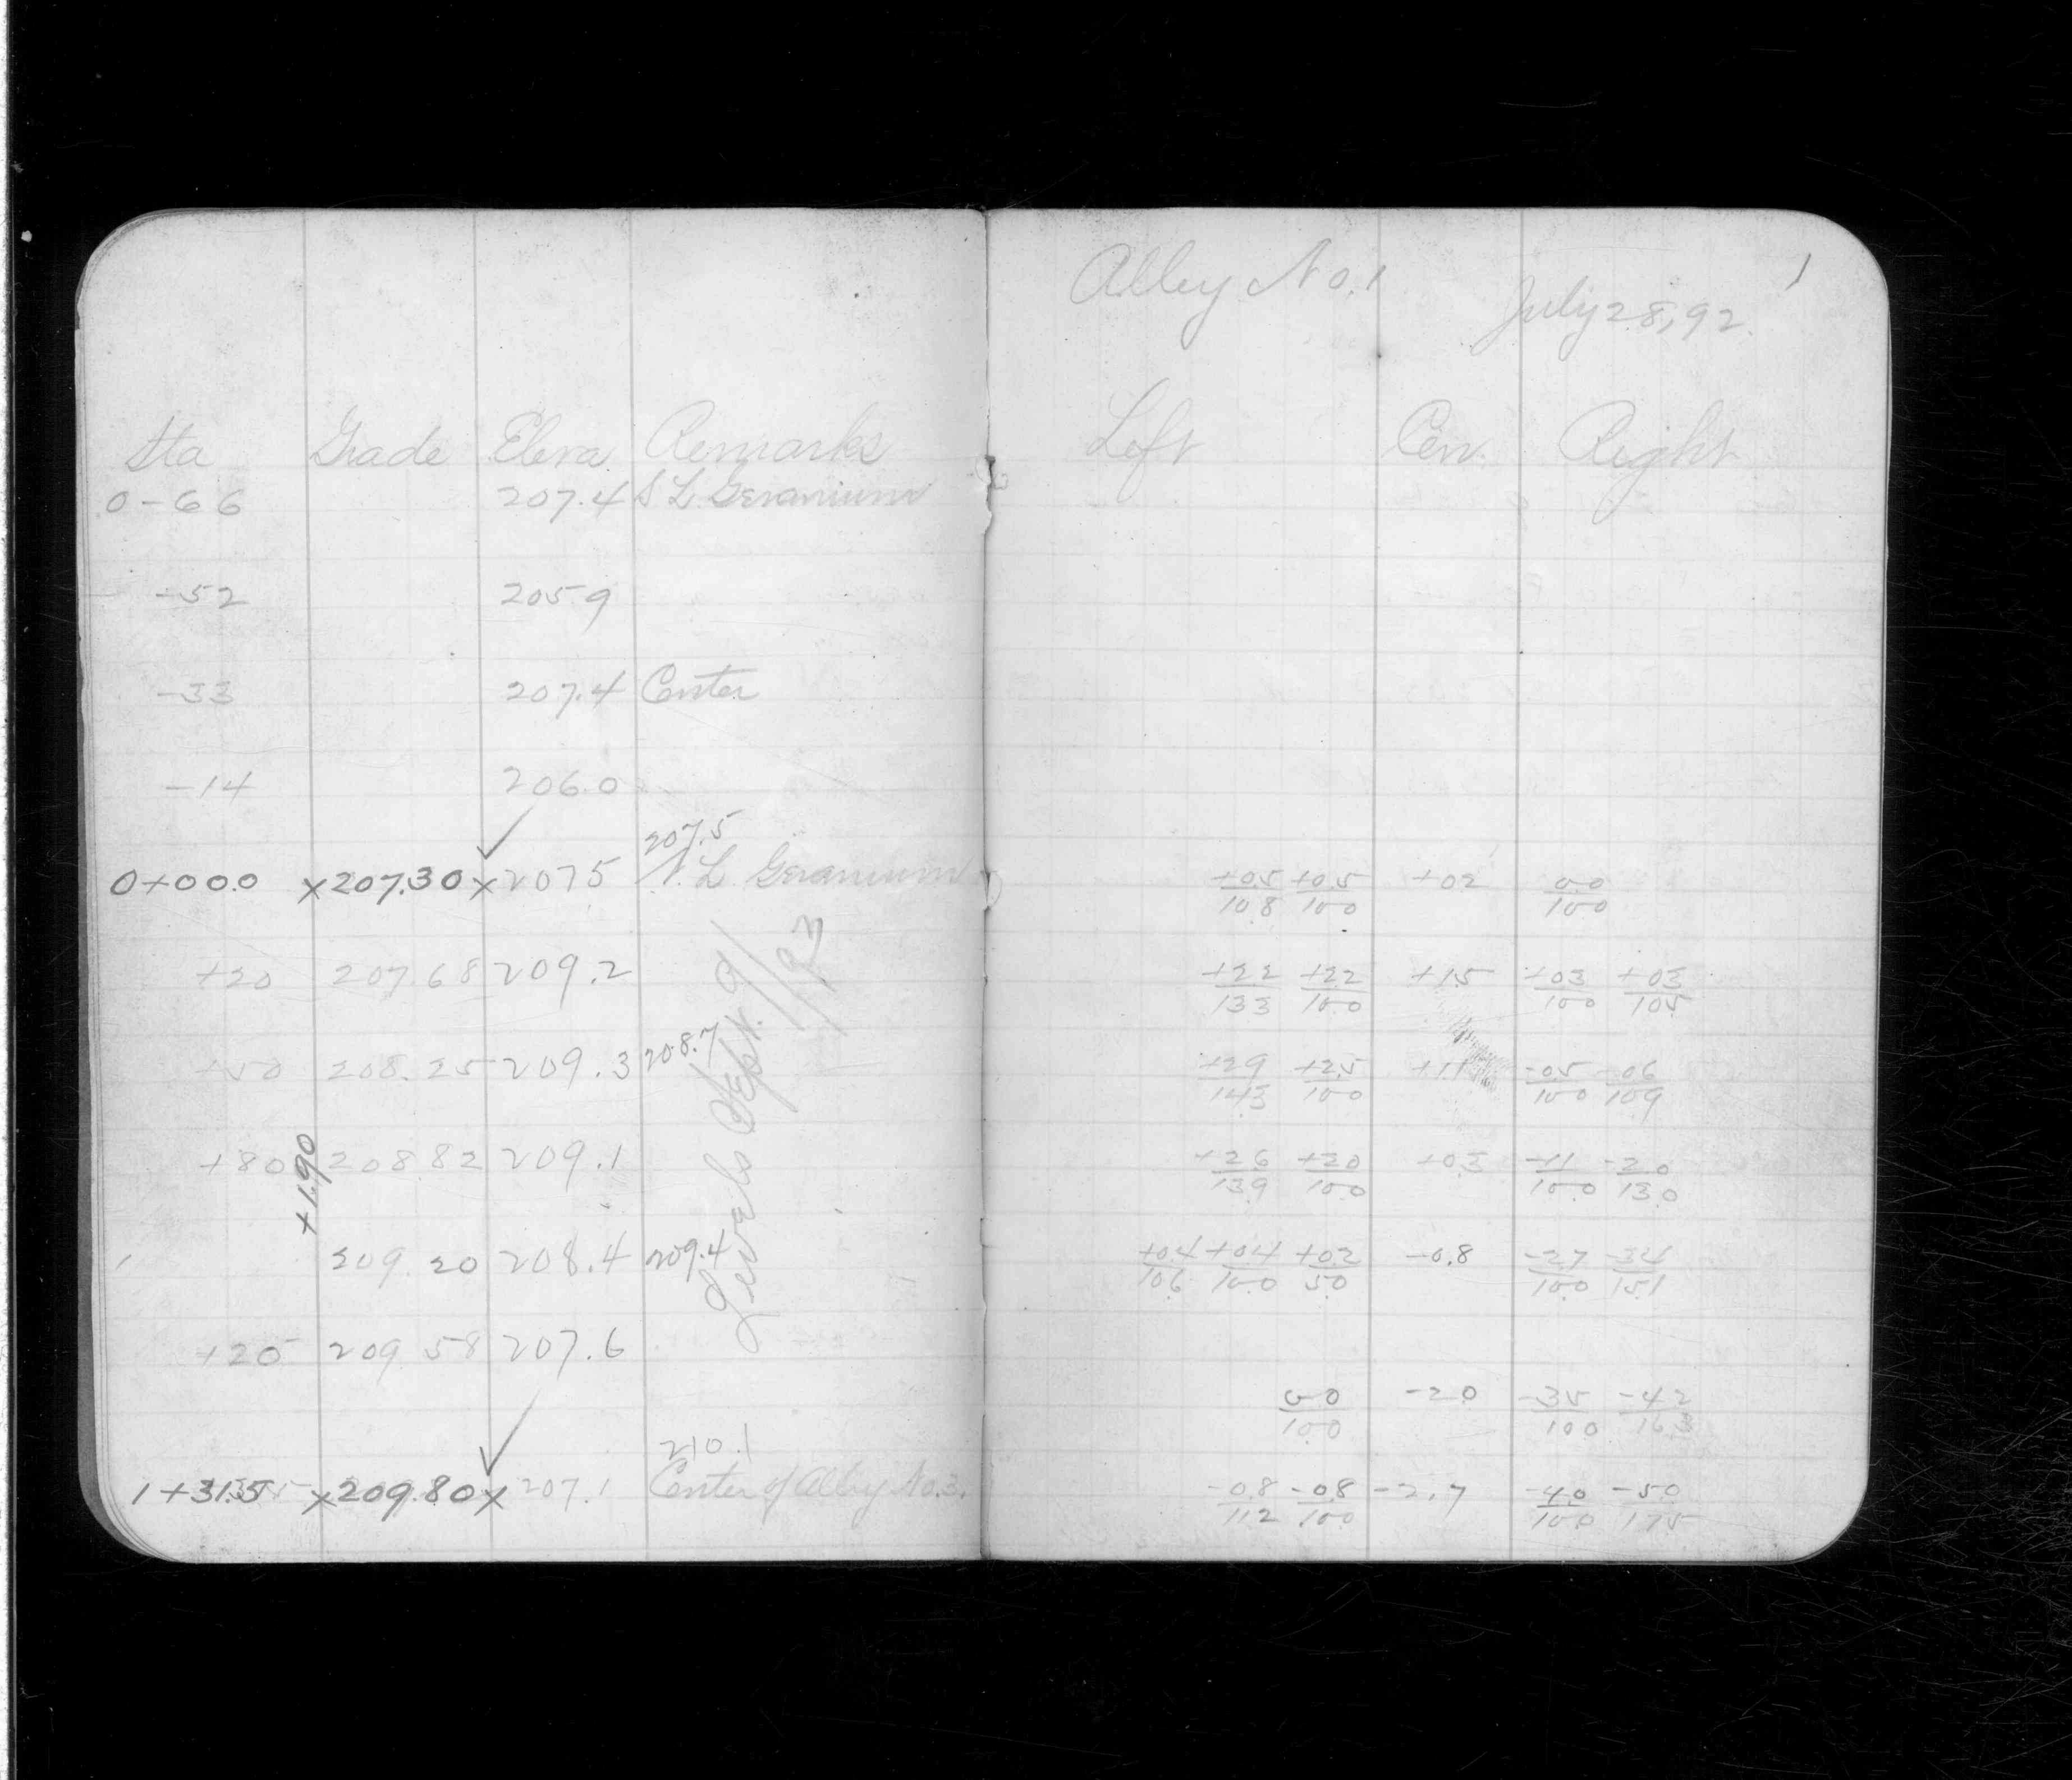 Sta Grade Eleva Remarks
0-66 207.4 S L Geranium
-52 205.9
-33 207.4 Center
-14 206.0
207.5
0+00.0 x207.30x 207.5 N. L. Geranium
+20 207.68 209.2
+50 208.25 209.3 208.7
+80 208.82 209.1
+1.90
1 209.20 208.4 209.4
+20 209.58 207.6
210.1
1+31.5 x209.80x 207.1 Center of Alley No. 3.
Levels Sept. 9/93
1
Alley No. 1
July 28, 92.
Left Cen. Right
+0.5/10.8 +0.5/10.0 +0.2 0.0/10.0
+2.2/13.3 +2.2/10.0 +1.5 +0.3/10.0 +0.3/10.5
+2.9/14.3 +2.5/10.0 +1.1 -0.5/10.0 -0.6/10.9
+2.6/13.9 +2.0/10.0 +0.3 -1.1/10.0 -2.0/13.0
+0.4/10.6 +0.4/10.0 +0.2/5.0 -0.8 -2.7/10.0 -3.4/15.1
0.0/10.0 -2.0 -3.5/10.0 -4.2/16.3
-0.8/11.2 -0.8/10.0 -2.7 -4.0/10.0 -5.0/17.5